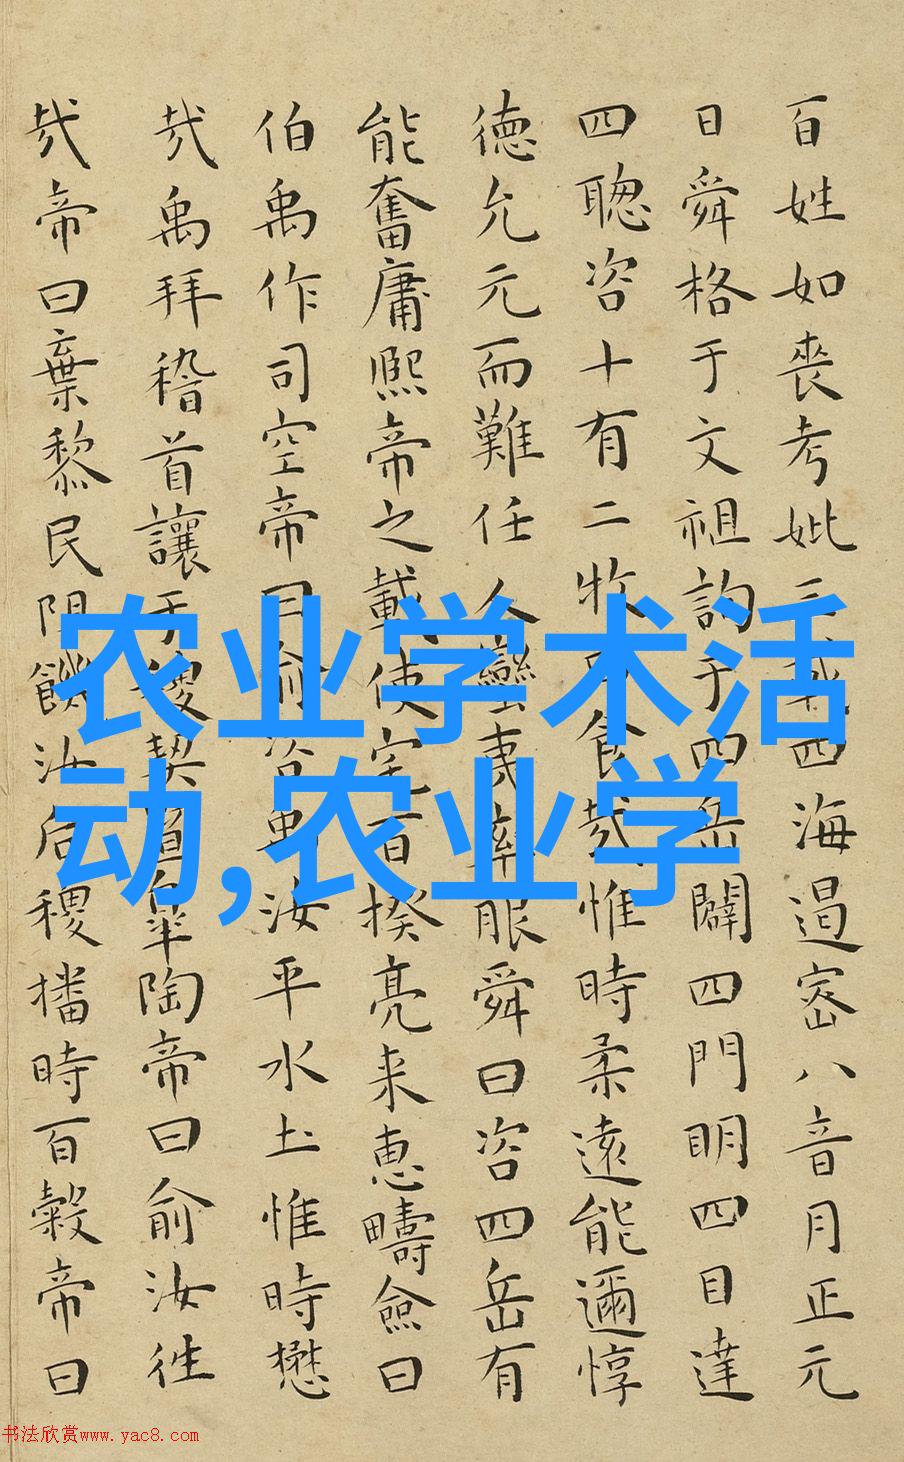 百姓如喪考妣三載四海遏密八音月正元
日舜格于文祖詢于四岳闢四門明四目達
四聰咨十有二牧曰食哉惟時柔遠能邇惇
德允元而難任人蠻夷率服舜曰咨四岳有
能奮庸熙帝之載使宅百揆亮来惠疇僉曰
伯禹作司空帝曰俞咨禹汝平水土惟時懋
哉禹拜稽首讓于稷契暨皐陶帝曰俞汝往
哉帝曰棄黎民阻飢汝后稷播時百穀帝曰
农业学术活
动,农业学
书法欣赏www.yac8.com